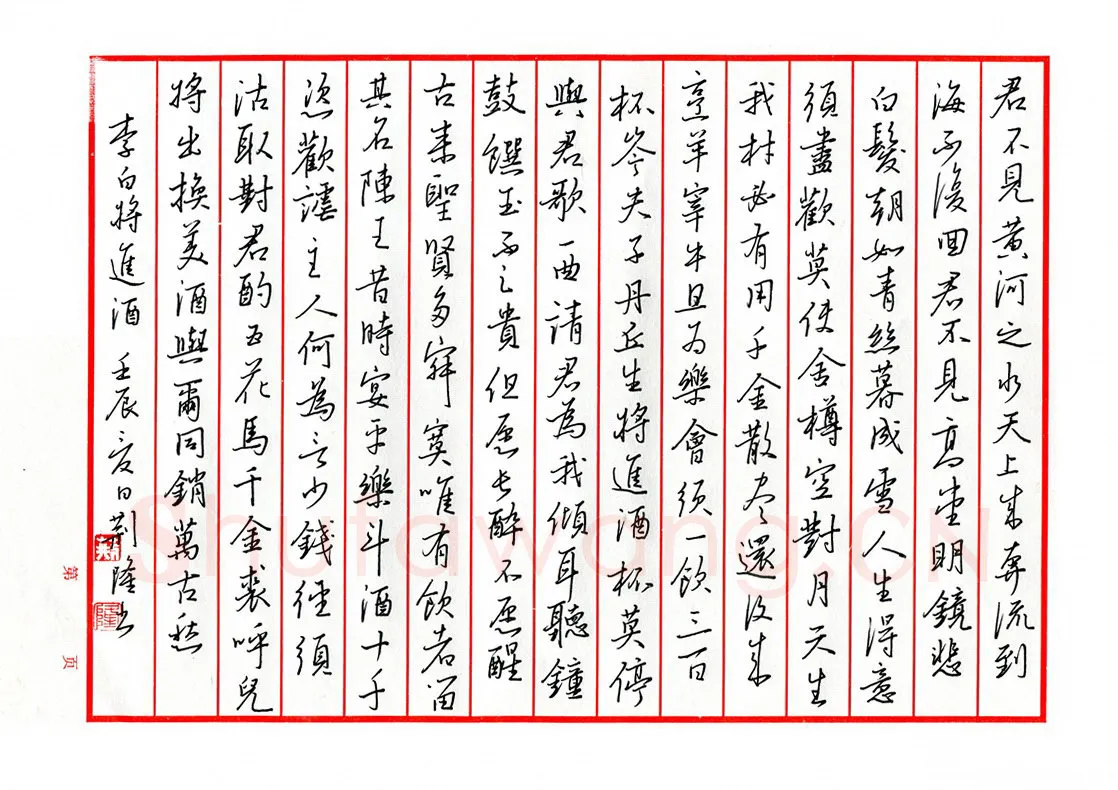 君不見黃河之水天上來奔流到
海不復回君不見高堂明鏡悲
白髮朝如青絲暮成雪人生得意
須盡歡莫使金樽空對月天生
我材必有用千金散盡還復來
烹羊宰牛且為樂會須一飲三百
杯岑夫子丹丘生將進酒杯莫停
與君歌一曲請君為我傾耳聽鐘
鼓饌玉不足貴但愿長醉不愿醒
古來聖賢多寂寞唯有飲者留
其名陳王昔時宴平樂斗酒十千
恣歡謔主人何為言少錢徑須
沽取對君酌五花馬千金裘呼兒
將出換美酒與爾同銷萬古愁
李白將進酒 壬辰夏日荊隆書
第 页
Shufawang.CN